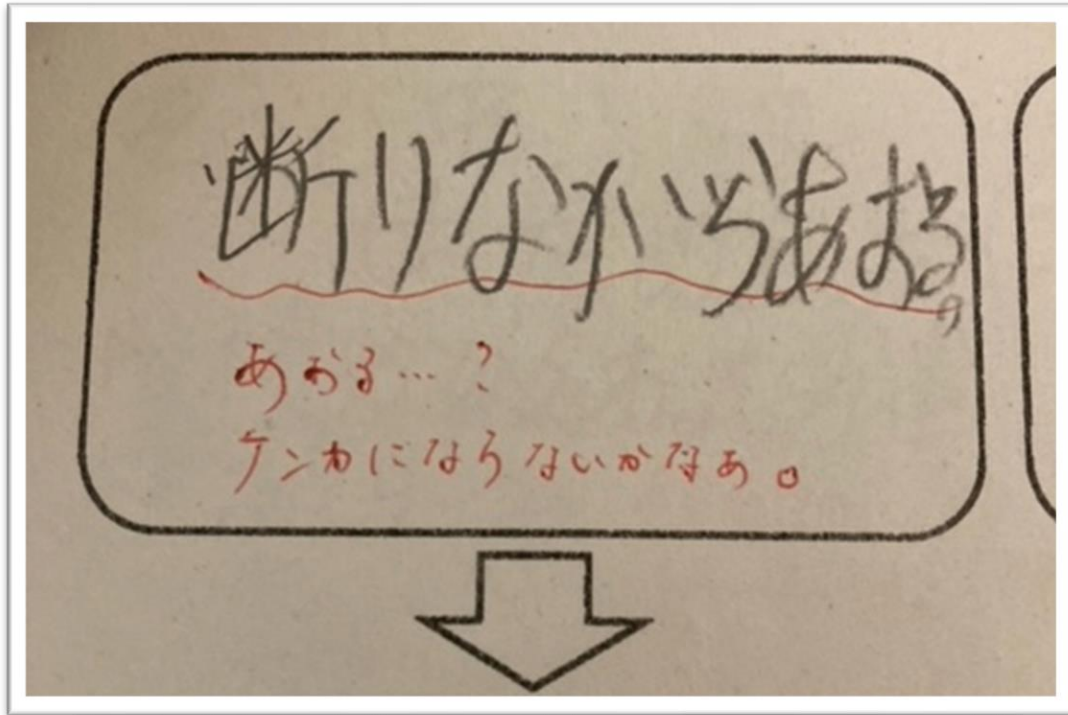 断りながらあおる。
あおる…?
ケンカにならないかなあ。